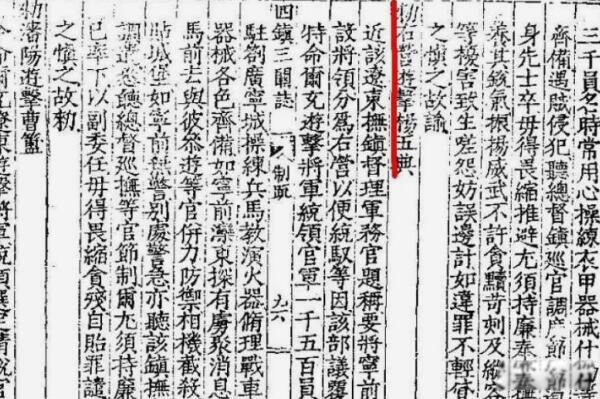 三千員名時常用心操練衣甲器械什
齊備遇賊侵犯聽總督鎮巡官調度節
身先士卒毋得畏縮推避尤須持廉奉
養其銳氣振揚威武不許貪黷苛刻及縱容
等擾害致生嗟怨妨誤邊計如違罪不輕貸
之慎之故諭
勑右營遊擊楊五典
近該遼東撫鎮督理軍務官題稱要將寧前
設將領分爲右營以便統馭等因該部議覆
特命爾充遊擊將軍統領官軍一千五百員
四鎮三關誌 制疏 九六
駐劄廣寧城操練兵馬教演火器脩理戰車
器械各色齊備如寧前遼東探有虜聚消息
馬前去與彼參遊等官併力防禦相機截殺
站城堡如寧前無警別處警急亦聽該鎮撫
調遣悉聽總督巡撫等官節制爾尤須持廉
己率下以副委任毋得畏縮貪殘自貽罪譴
之慎之故勑
勑瀋陽遊擊曹簠
今命爾充遼東遊擊將軍統領選定精銳官